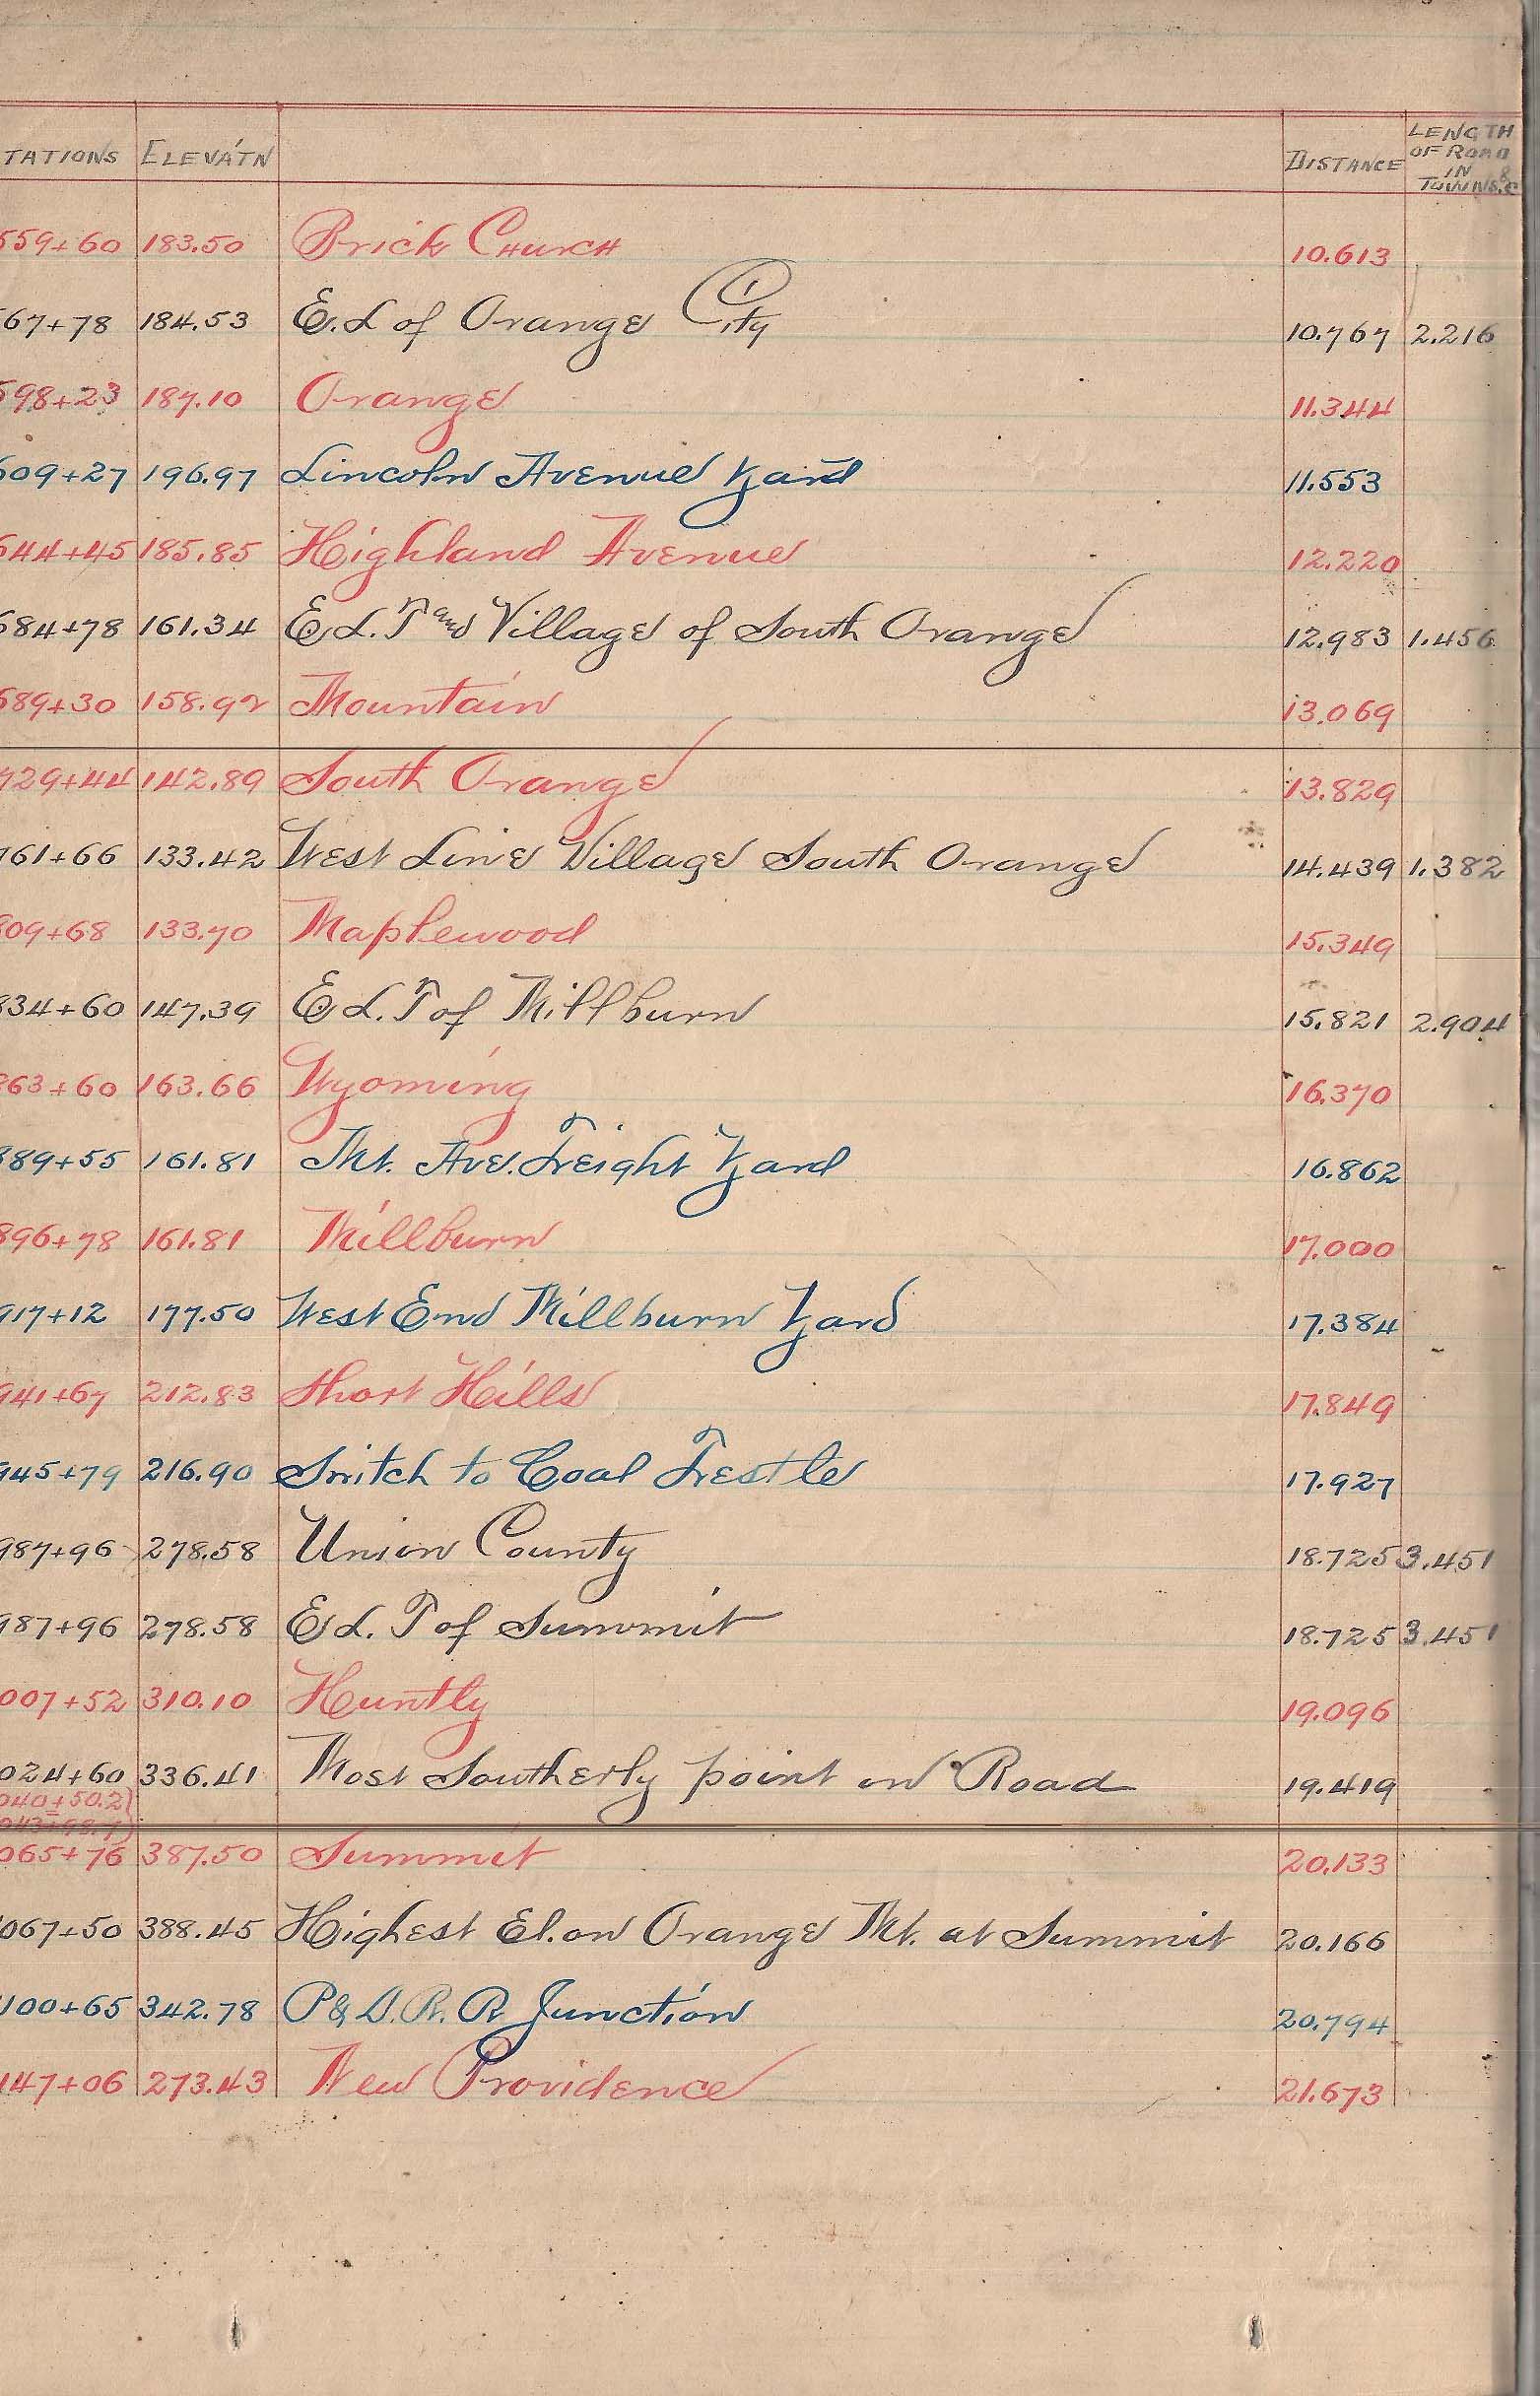 TATIONS ELEVA'TN DISTANCE LENGTH OF ROAD IN TOWNS &c
559+60 183.50 Brick Church 10.613
67+78 184.53 E.L of Orange City 10.767 2.216
598+23 187.10 Orange 11.344
609+27 196.97 Lincoln Avenue Yard 11.553
644+45 185.85 Highland Avenue 12.220
684+78 161.34 E L. Tn and Village of South Orange 12.983 1.456
689+30 158.92 Mountain 13.069
729+44 142.89 South Orange 13.829
761+66 133.42 West Line Village South Orange 14.439 1.382
809+68 133.70 Maplewood 15.349
834+60 147.39 E L. Tn of Millburn 15.821 2.904
863+60 163.66 Wyoming 16.370
889+55 161.81 Mt. Ave. Freight Yard 16.862
896+78 161.81 Millburn 17.000
917+12 177.50 West End Millburn Yard 17.384
941+67 212.83 Short Hills 17.849
945+79 216.90 Switch to Coal Trestle 17.927
987+96 278.58 Union County 18.725 3.451
987+96 278.58 E L. T of Summit 18.725 3.451
007+52 310.10 Huntly 19.096
024+60 336.41 Most Southerly point on Road 19.419
040+50.2
043+98.7
065+76 387.50 Summit 20.133
067+50 388.45 Highest El. on Orange Mt. at Summit 20.166
100+65 342.78 P & D. R. R Junction 20.794
147+06 273.43 New Providence 21.673